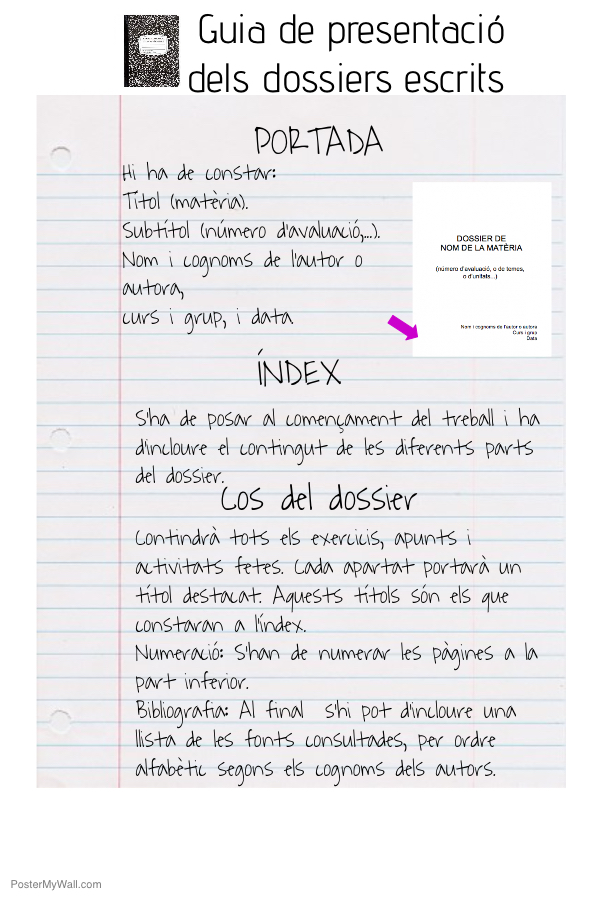 Guia de presentació
dels dossiers escrits
PORTADA
Hi ha de constar:
Títol (matèria).
Subtítol (número d'avaluació,...).
Nom i cognoms de l'autor o
autora,
curs i grup, i data
DOSSIER DE
NOM DE LA MATÈRIA
(número d'avaluació, o de temes,
o d'unitats...)
Nom i cognoms de l'autor o autora
Curs i grup
Data
ÍNDEX
S'ha de posar al començament del treball i ha
d'incloure el contingut de les diferents parts
del dossier.
Cos del dossier
Contindrà tots els exercicis, apunts i
activitats fetes. Cada apartat portarà un
títol destacat. Aquests títols són els que
constaran a l'índex.
Numeració: S'han de numerar les pàgines a la
part inferior.
Bibliografia: Al final s'hi pot d'incloure una
llista de les fonts consultades, per ordre
alfabètic segons els cognoms dels autors.
PosterMyWall.com